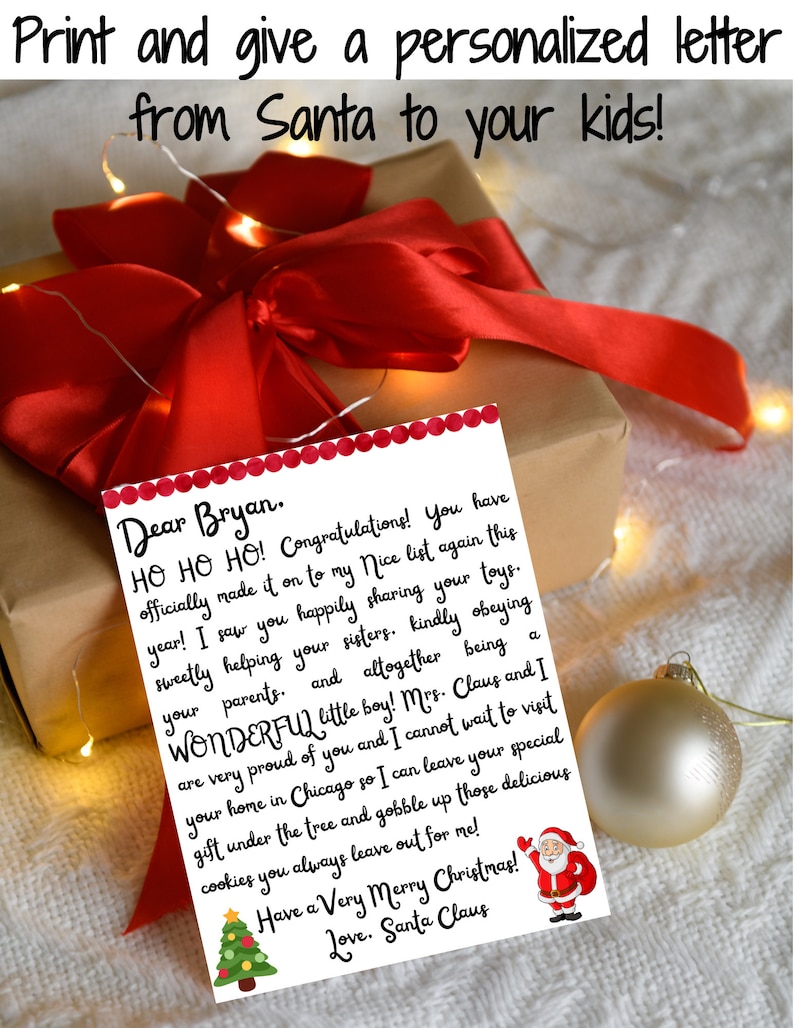 Print and give a personalized letter
from Santa to your kids!
Dear Bryan,
HO HO HO! Congratulations! You have
officially made it on to my Nice list again this
year! I saw you happily sharing your toys,
sweetly helping your sisters, kindly obeying
your parents, and altogether being a
WONDERFUL little boy! Mrs. Claus and I
are very proud of you and I cannot wait to visit
your home in Chicago so I can leave your special
gift under the tree and gobble up those delicious
cookies you always leave out for me!
Have a Very Merry Christmas!
Love, Santa Claus